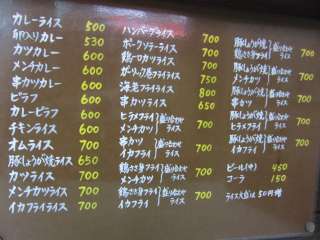 カレーライス 500
卵入りカレー 530
カツカレー 600
メンチカレー 600
串カツカレー 600
ピラフ 600
カレーピラフ 600
チキンライス 600
オムライス 700
豚しょうが焼ライス 650
カツライス 700
メンチカツライス 700
イカフライライス 700
ハンバーグライス 700
ポークソテーライス 700
鶏一口カツライス 700
ガーリック風フライライス 750
海老フライライス 800
串カツライス 650
ヒラメフライ
メンチカツ 盛り合わせライス 700
串カツ
イカフライ 盛り合わせライス 700
鶏ささ身フライ
メンチカツ 盛り合わせライス 700
鶏ささ身フライ
イカフライ 盛り合わせライス 700
豚しょうが焼
メンチカツ 盛り合わせライス 700
豚しょうが焼
串カツ 盛り合わせライス 700
豚しょうが焼
ヒラメフライ 盛り合わせライス 700
豚しょうが焼
イカフライ 盛り合わせライス 700
ビール(中) 450
コーラ 150
ライス大盛は50円増